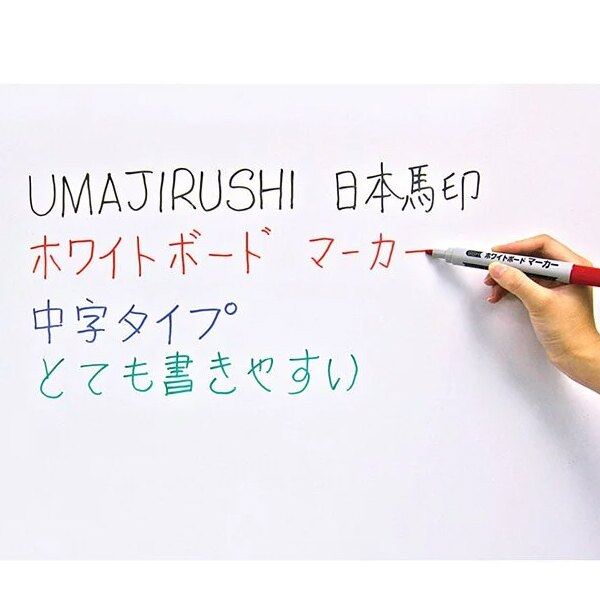 UMAJIRUSHI 日本馬印
ホワイトボード マーカー
ホワイトボード マーカー
中字タイプ
とても書きやすい